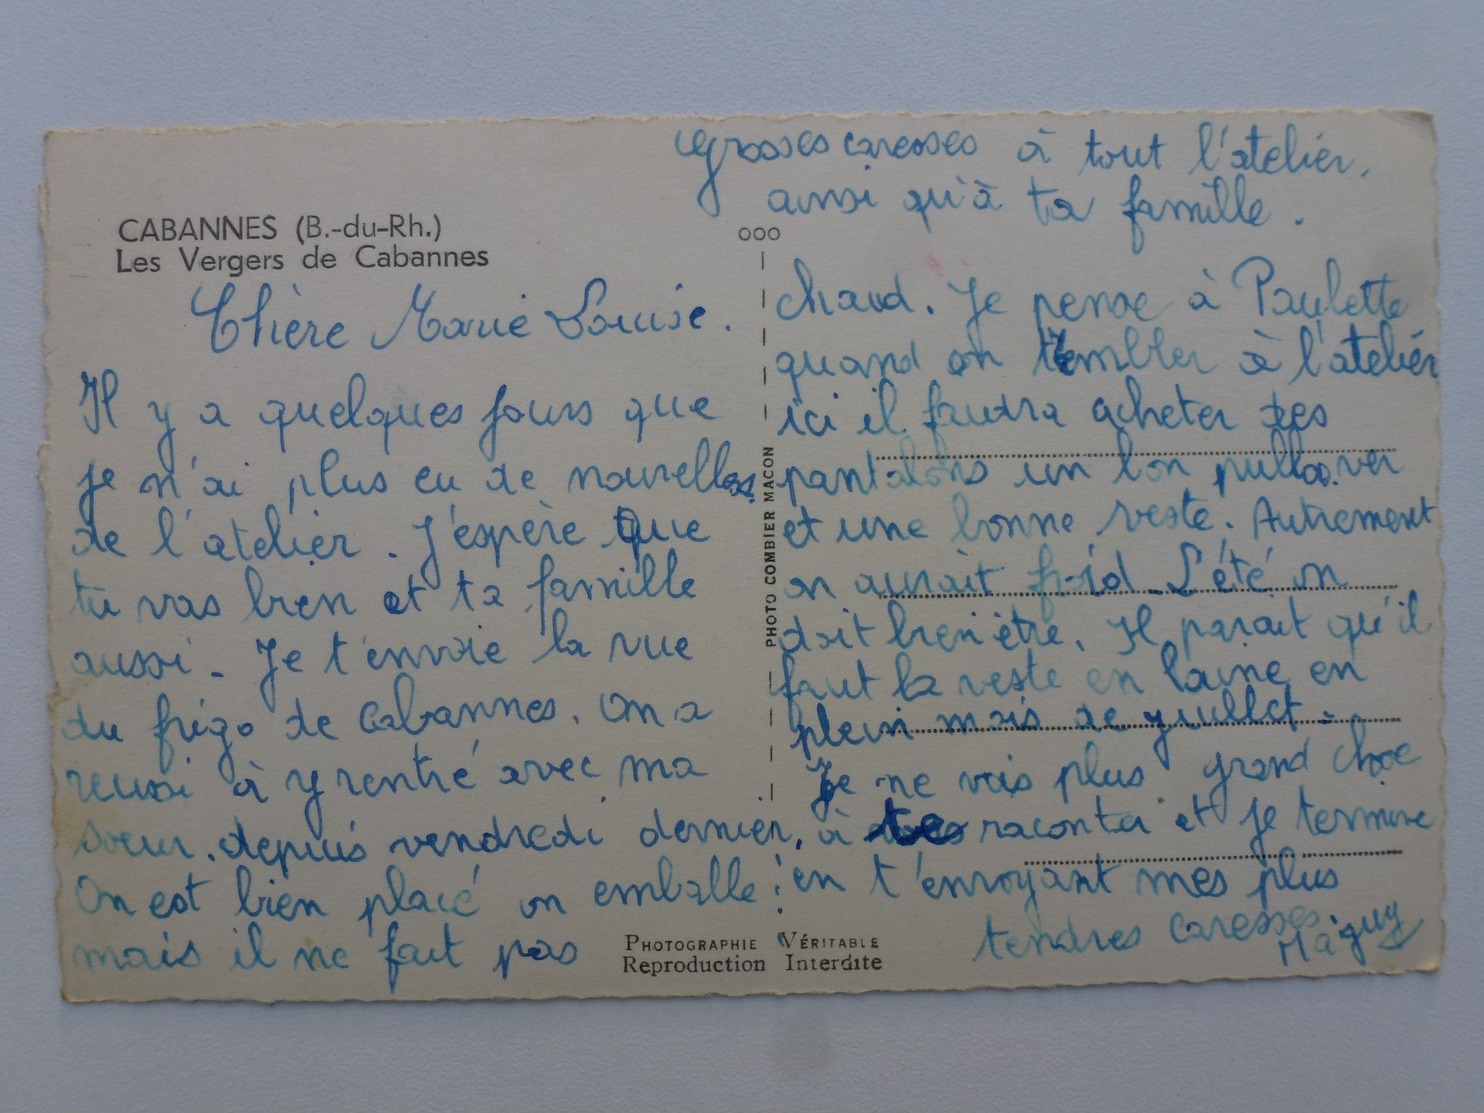 Grosses caresses à tout l'atelier.
ainsi qu'à ta famille.
CABANNES (B.-du-Rh.)
Les Vergers de Cabannes
Chère Marie Louise.
Il y a quelques jours que
je n'ai plus eu de nouvelles
de l'atelier. J'espère que
tu vas bien et ta famille
aussi. Je t'envoie la vue
du frigo de Cabannes. On a
reussi à y rentré avec ma
soeur. depuis vendredi dernier,
On est bien placé on emballe
mais il ne fait pas
PHOTO COMBIER MACON
chaud. Je pense à Paulette
quand on à l'atelier
ici il faudra acheter des
pantalons un bon pullover
et une bonne veste. Autrement
on aurait froid. L'été on
doit bien être. Il parait qu'il
faut la veste en laine en
plein mois de juillet.
Je ne vois plus grand chose
à te raconter et je termine
en t'envoyant mes plus
tendres caresses.
Maguy
PHOTOGRAPHIE VÉRITABLE
Reproduction Interdite